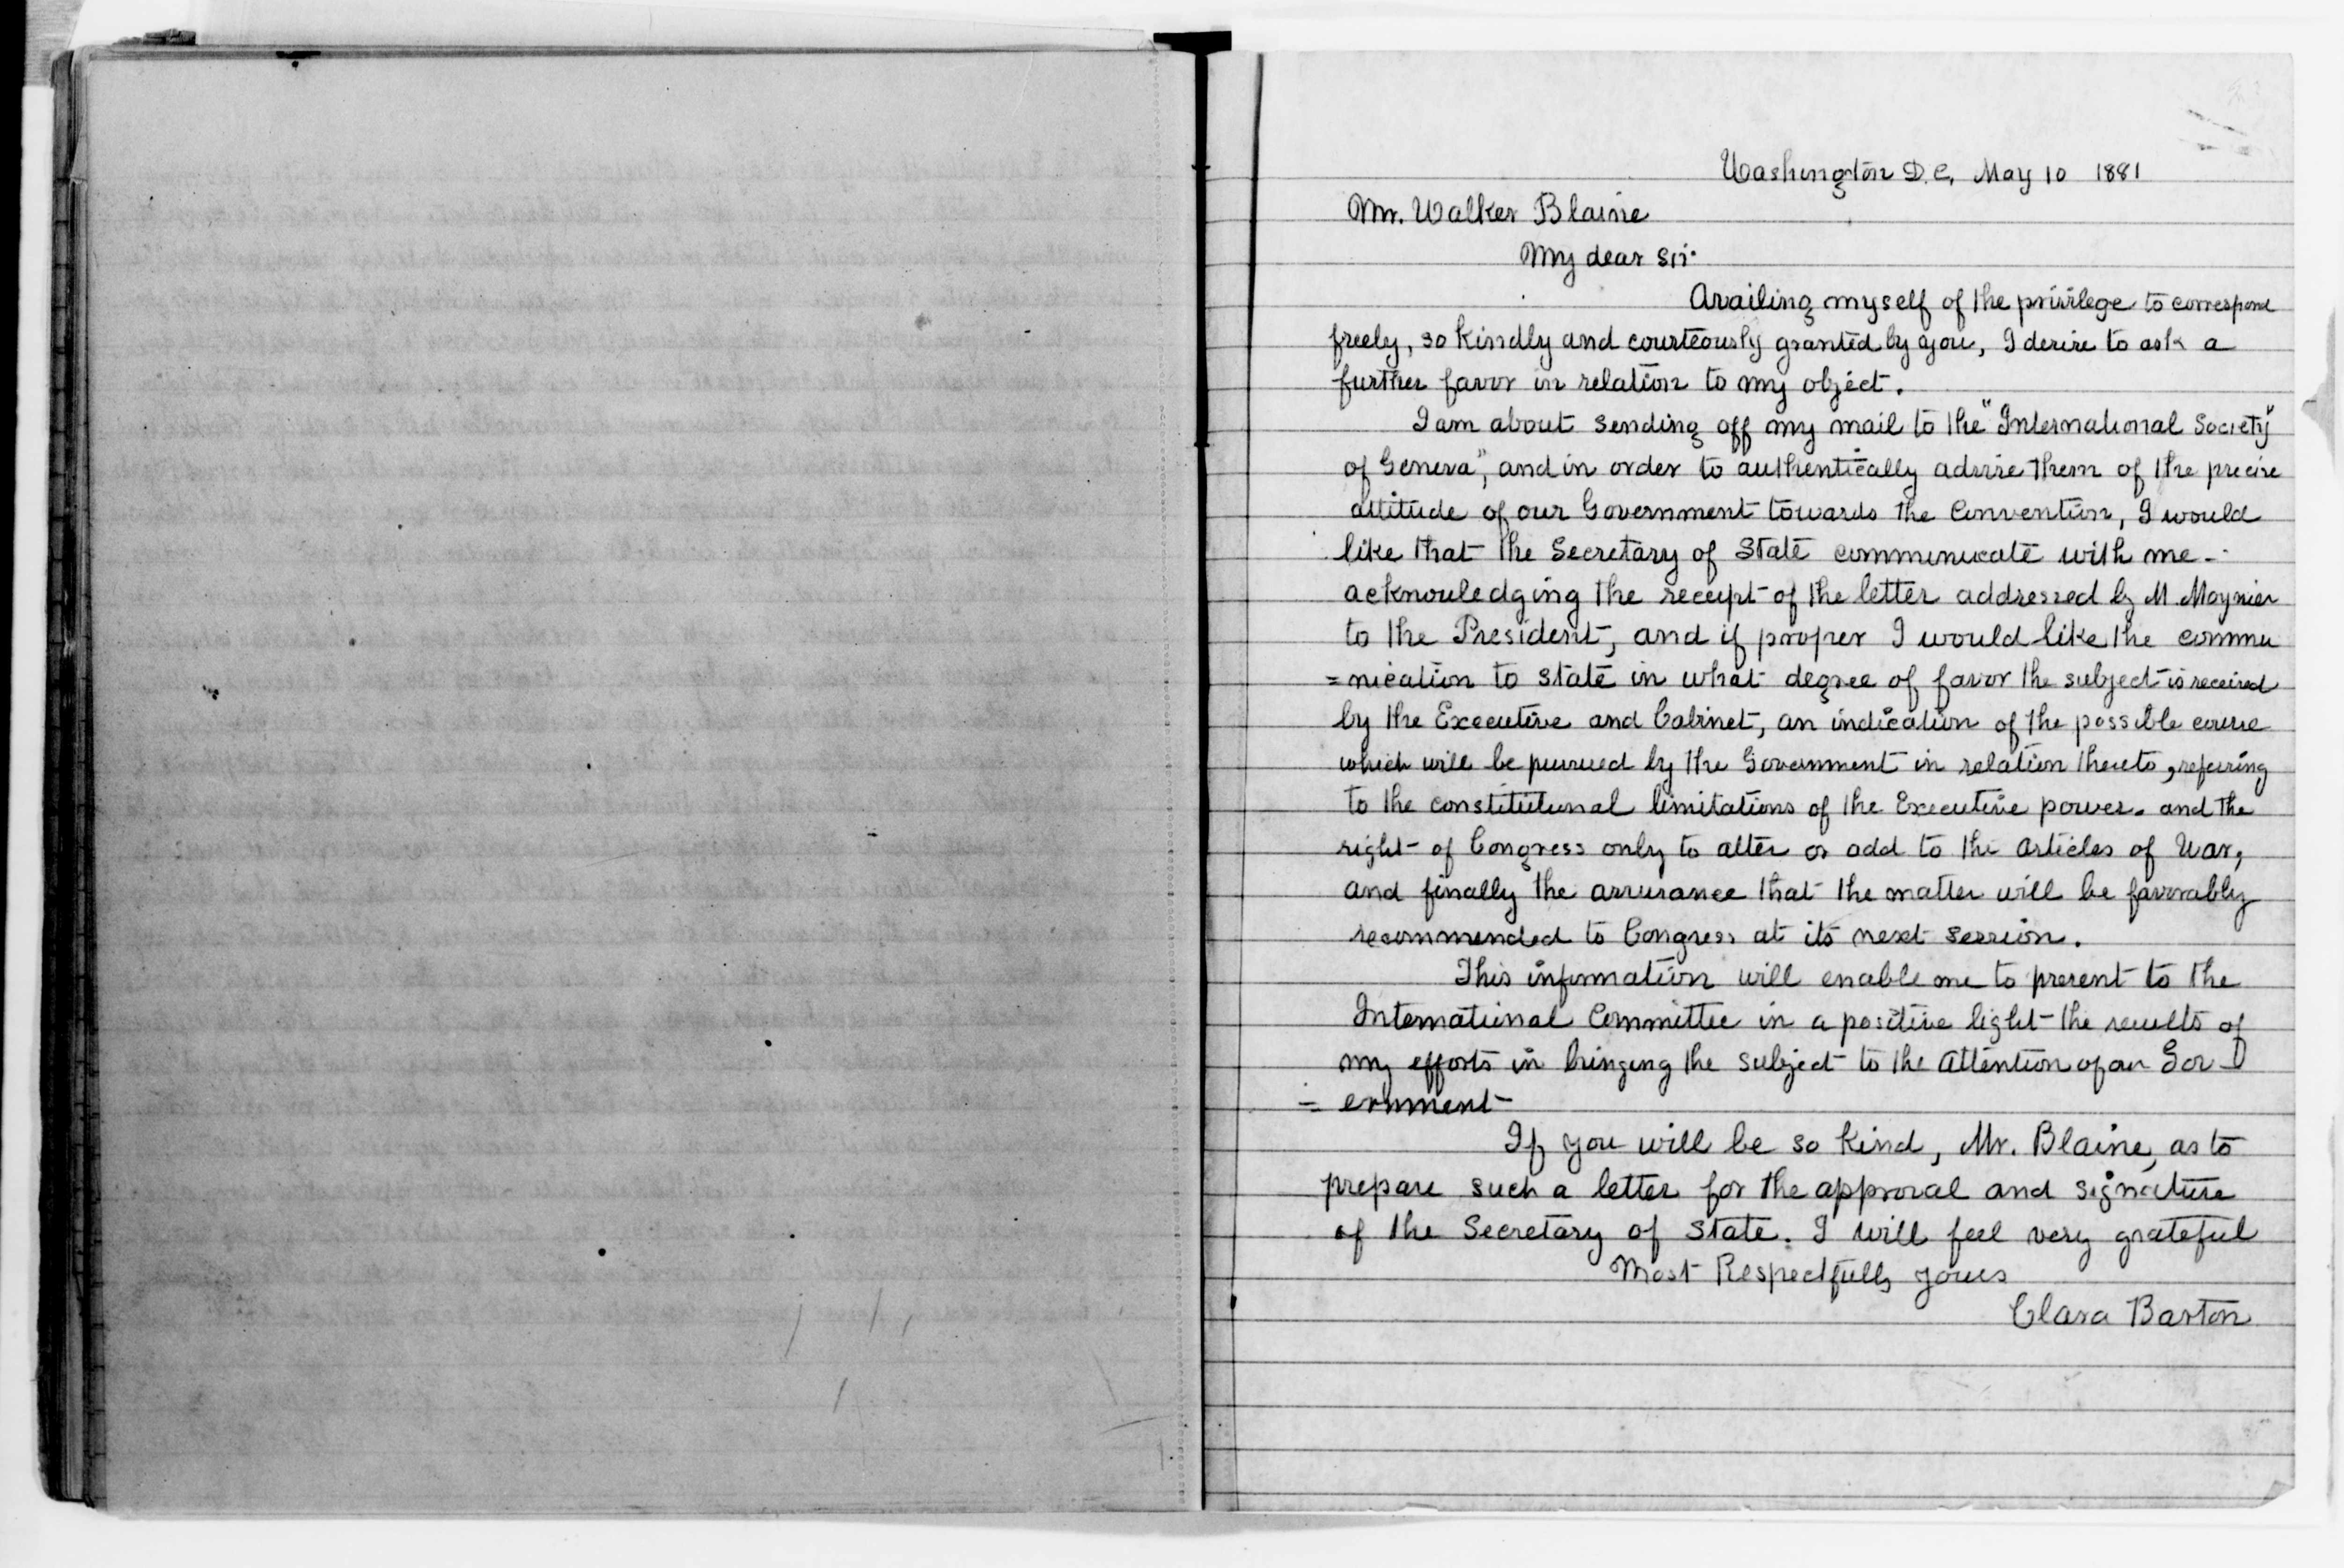 Washington D.C. May 10 1881
Mr. Walker Blaine
My dear sir.
Availing myself of the privilege to correspond
freely, so kindly and courteously granted by you, I desire to ask a
further favor in relation to my object.
I am about sending off my mail to the "International Society"
of Geneva", and in order to authentically advise them of the precise
attitude of our Government towards the Convention, I would
like that the Secretary of State communicate with me -
acknowledging the receipt of the letter addressed by M. Moynier
to the President, and if proper I would like the commu
=nication to state in what degree of favor the subject is received
by the Executive and Cabinet, an indication of the possible course
which will be pursued by the Government in relation thereto, refering
to the constitutional limitations of the Executive power. and the
right of Congress only to alter or add to the articles of War,
and finally the assurance that the matter will be favorably
recommended to Congress at its next session.
This information will enable me to present to the
International Committee in a positive light the results of
my efforts in bringing the subject to the attention of our Gov-
=ernment-
If you will be so kind, Mr. Blaine, as to
prepare such a letter for the approval and signature
of the Secretary of State. I will feel very grateful
Most Respectfully yours
Clara Barton